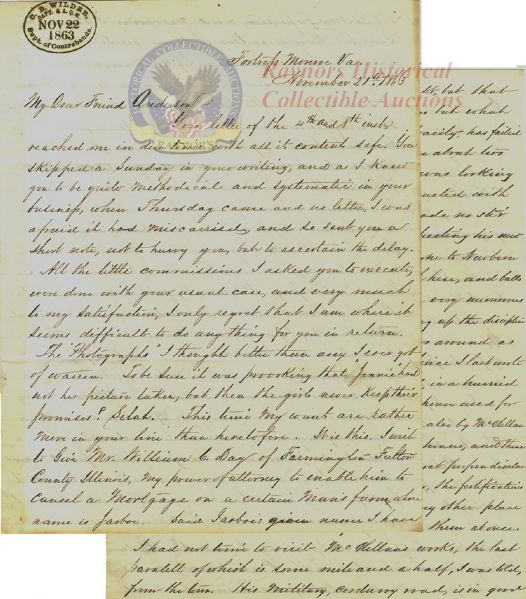 C. B. WILDER,
CAPT. & A.Q.M.
NOV 22
1863
Dept. of Contrabands
HISTORICAL COLLECTIBLE AUCTIONS
RAYNOR'S
Raynors Historical
Collectible Auctions
Fortress Monroe Va.
November 21st 1863
My Dear Friend Anderson
Your letter of the 4th and 8th inst.
reached me in due time with all its contents safe. You
skipped a Sunday in your writing, and as I knew
you to be quite methodical and systematic in your
business, when Thursday came and no letter, I was
afraid it had miscarried, and so sent you a
short note, not to hurry you, but to ascertain the delay.
All the little commissions I asked you to execute,
were done with your usual care, and very much
to my satisfaction, I only regret that I am where it
seems difficult to do any thing for you in return.
The "Photographs" I thought better than any I ever got
of Warren. To be sure it was provoking that Jennie had
not her picture taken, but then the girls never keep their
promises! Selah. This time my wants are rather
more in your line than heretofore. It is this. I wish
to Give Mr. William C. Day of Farmington Fulton
County Illinois, my power of attorney to enable him to
cancel a Mortgage on a certain Man's farm, whose
name is Jarboe. Said Jarboe's name I have
but that
but what
has failed
about two
was looking
with
made no stir
his new
to Newbern
here, and balls
very numerous
up the discipline
around as
since I last wrote
in a hurried
house used for
also by McClellan
and then
perpendicular
The fortifications
other place
them at once.
I had not time to visit McClellan's works, the last
paralell of which is some mile and a half, I was told,
from the town. His Military, corduroy road, is in good